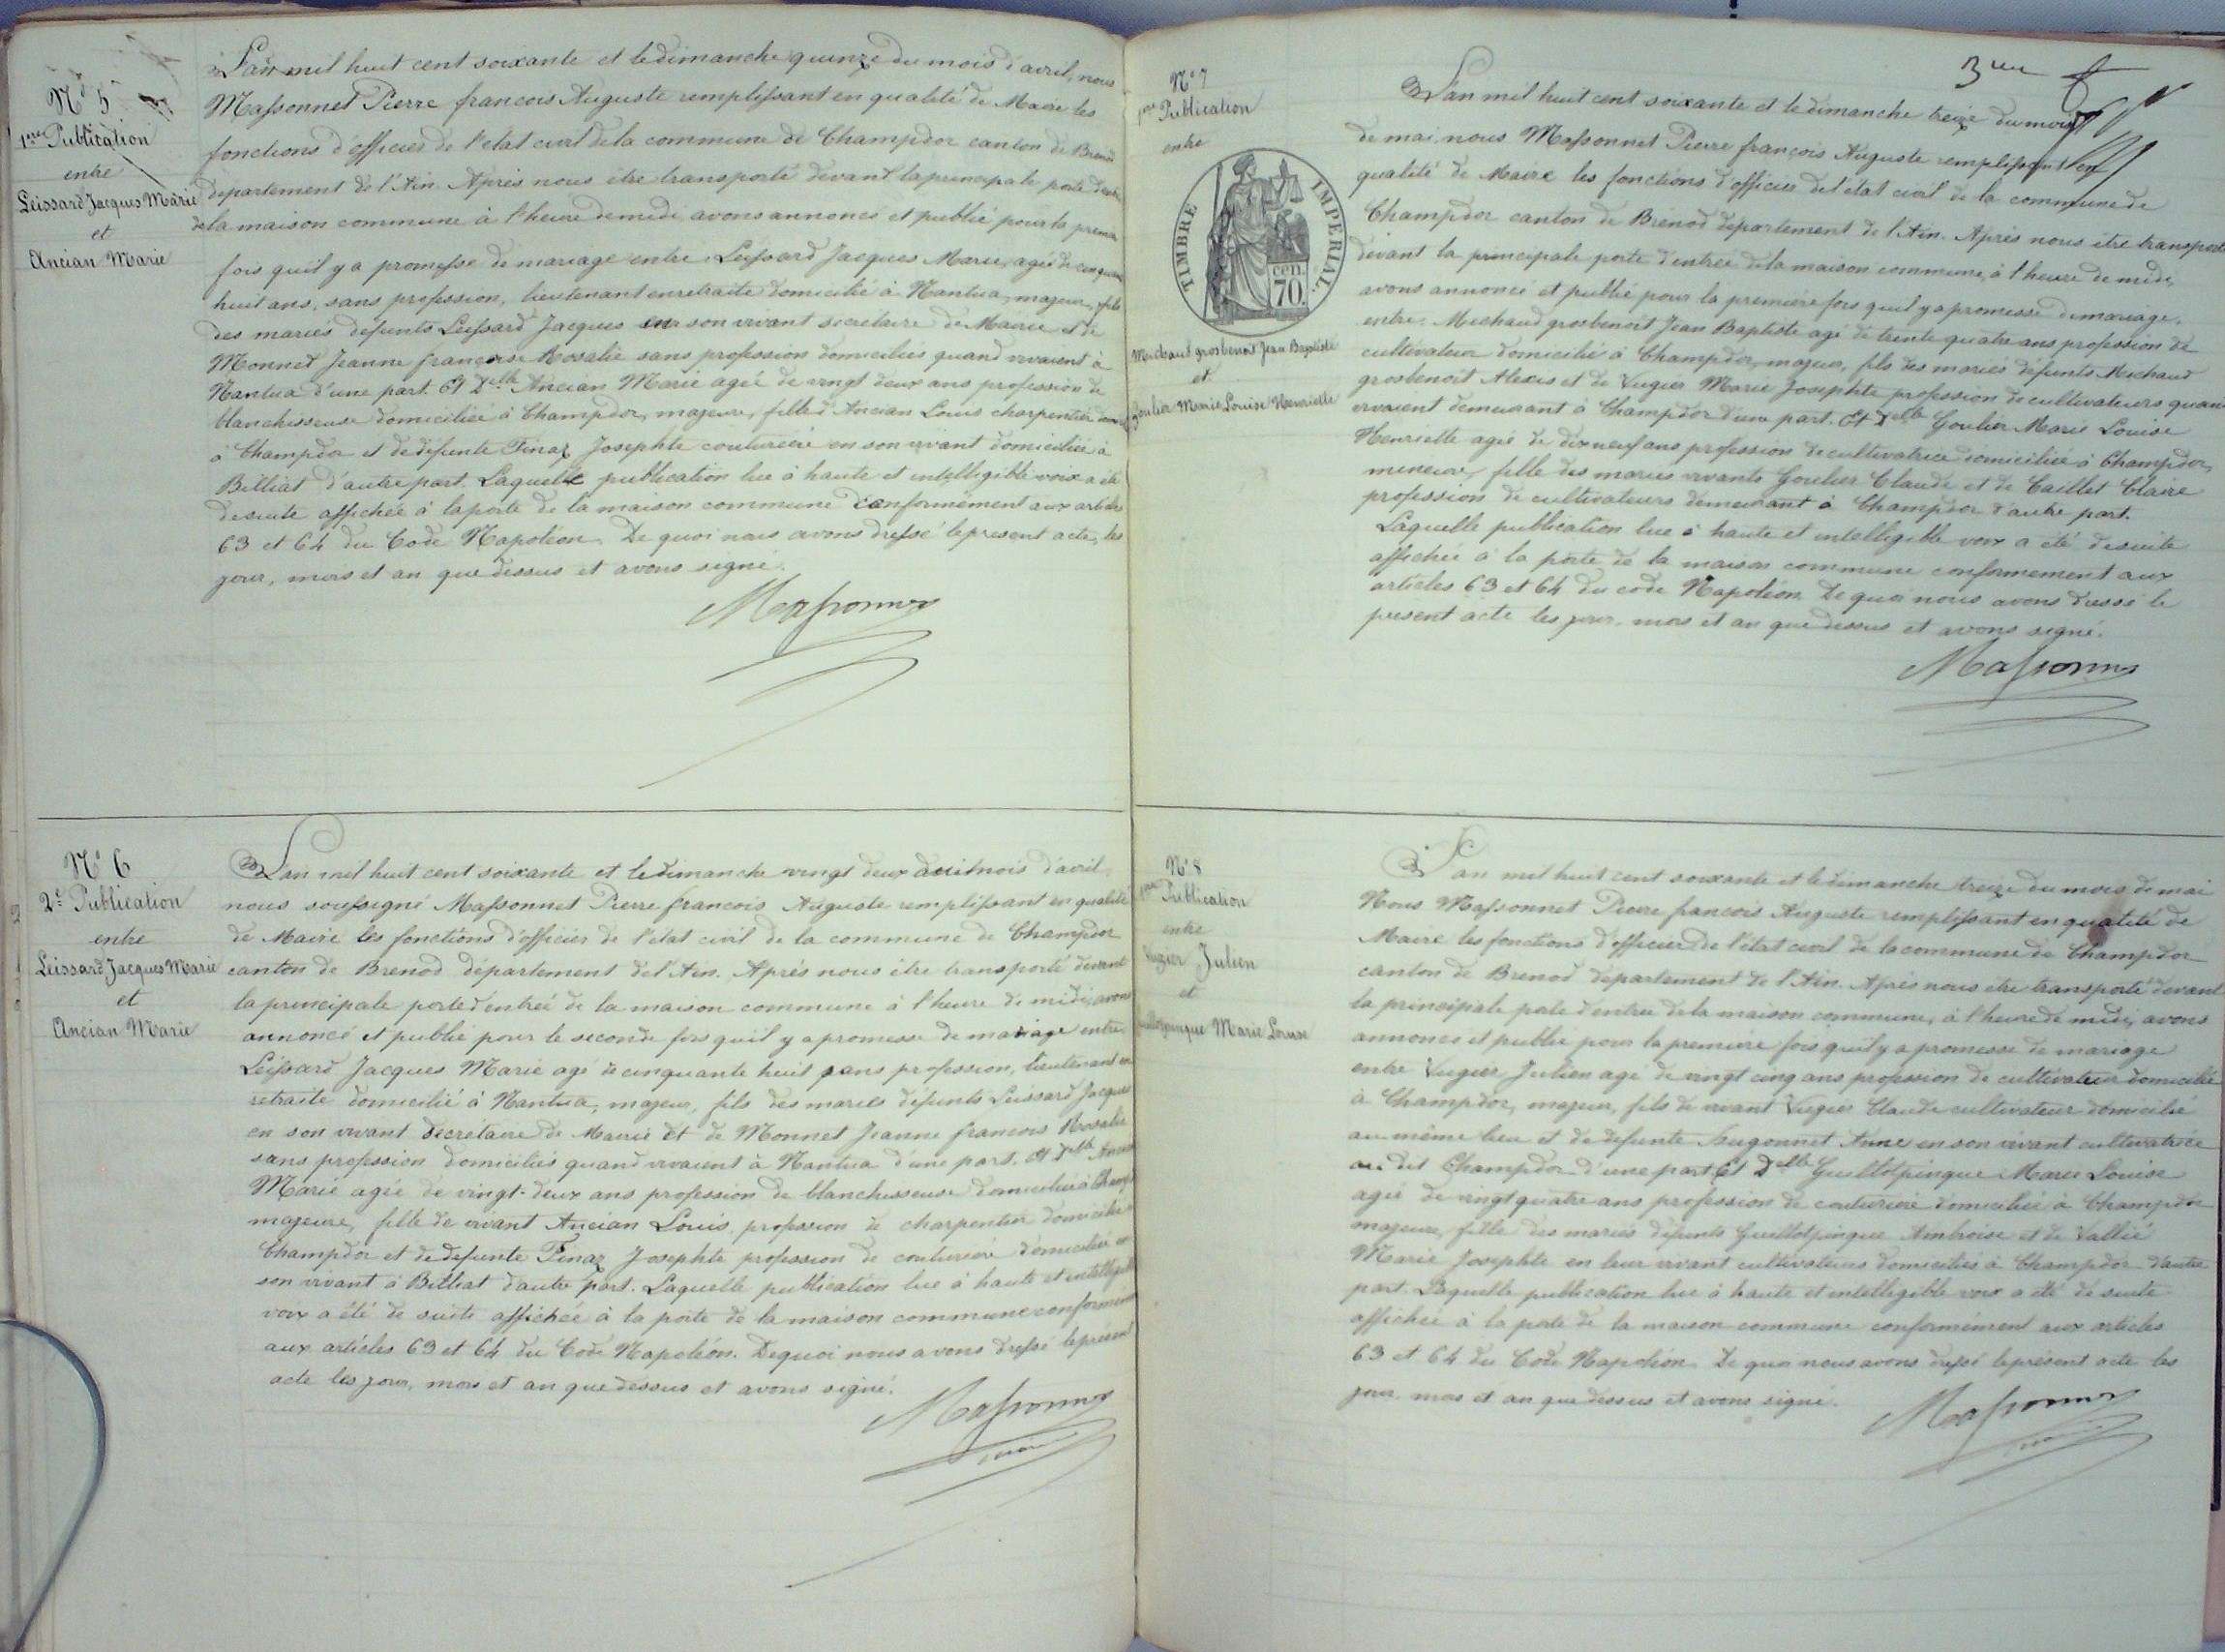 N° 5
1ere Publication
entre
Leissard Jacques Marie
et
Ancian Marie
L'an mil huit cent soixante et le dimanche quinze du mois d'avril, nous
Massonnet Pierre francois Auguste remplissant en qualité de Maire les
fonctions d'officier de l'etat civil de la commune de Champdor canton de Brenod
departement de l'Ain. Après nous etre transporté devant la principale porte d'entrée
de la maison commune à l'heure de midi avons annoncé et publié pour la premiere
fois qu'il y a promesse de mariage entre Leissard Jacques Marie, agé de cinquante
huit ans, sans profession, lieutenant en retraite domicilié à Nantua, majeur, fils
des mariés defunts Leissard Jacques en son vivant secretaire de Mairie et de
Monnet Jeanne françoise Rosalie sans profession domiciliés quand vivaient à
Nantua d'une part. Et Delle Ancian Marie agée de vingt deux ans profession de
blanchisseuse domiciliée à Champdor, majeure, fille d'Ancian Louis charpentier
à Champdor et de defunte Finaz Josephte couturiere en son vivant domiciliée à
Billiat d'autre part. Laquelle publication lue à haute et intelligible voix a été
de suite affichée à la porte de la maison commune conformément aux articles
63 et 64 du Code Napoléon. De quoi nous avons dressé le present acte, les
jour, mois et an que dessus et avons signé.
Massonnet
N° 6
2e Publication
entre
Leissard Jacques Marie
et
Ancian Marie
L'an mil huit cent soixante et le dimanche vingt deux mois d'avril
nous soussigné Massonnet Pierre francois Auguste remplissant en qualité
de Maire les fonctions d'officier de l'état civil de la commune de Champdor
canton de Brenod département de l'Ain. Après nous être transporté devant
la principale porte d'entrée de la maison commune à l'heure de midi, avons
annoncé et publié pour le seconde fois qu'il y a promesse de mariage entre
Leissard Jacques Marie agé de cinquante huit ans profession, lieutenant en
retraite domicilié à Nantua, majeur, fils des mariés défunts Leissard Jacques
en son vivant secretaire de Mairie et de Monnet Jeanne francois Rosalie
sans profession domiciliés quand vivaient à Nantua d'une part. Et Delle Ancian
Marie agée de vingt-deux ans profession de blanchisseuse domiciliée à Champdor
majeure, fille de vivant Ancian Louis, profession de charpentier domicilié
Champdor et de defunte Finaz Josephte profession de couturière domiciliée en
son vivant à Billiat d'autre part. Laquelle publication lue à haute et intelligible
voix a été de suite affichée à la porte de la maison commune conformement
aux articles 63 et 64 du Code Napoléon. De quoi nous avons dressé le présent
acte les jour, mois et an que dessus et avons signé.
Massonnet
3me
N° 7
1ere Publication
entre
TIMBRE IMPERIAL
70 cen.
Michaud grosbenoit Jean Baptiste
et
Goulier Marie Louise Henriette
L'an mil huit cent soixante et le dimanche treize du mois
de mai, nous Massonnet Pierre françois Auguste remplissant en
qualité de Maire les fonctions d'officier de l'état civil de la commune de
Champdor canton de Brénod département de l'Ain. Après nous être transporté
devant la principale porte d'entrée de la maison commune, à l'heure de midi,
avons annoncé et publié pour la première fois qu'il y a promesse de mariage.
entre. Michaud grosbenoit Jean Baptiste agé de trente quatre ans profession de
cultivateur domicilié à Champdor, majeur, fils des mariés défunts Michaud
grosbenoit Alexis et de Vugier Marie Josephte profession de cultivateurs quand
vivaient demeurant à Champdor d'une part. Et Delle Goulier Marie Louise
Henriette agée de dix neuf ans profession de cultivatrice domiciliée à Champdor,
mineure, fille des mariés vivants Goulier Claude et de Caillet Claire
profession de cultivateurs demeurant à Champdor d'autre part.
Laquelle publication lue à haute et intelligible voix a été de suite
affichée à la porte de la maison commune conformement aux
articles 63 et 64 du code Napoléon. De quoi nous avons dressé le
présent acte les jour, mois et an que dessus et avons signé.
Massonnet
N° 8
1ere Publication
entre
Vugier Julien
et
Guillotpingue Marie Louise
L'an mil huit cent soixante et le dimanche treize du mois de mai
Nous Massonnet Pierre francois Auguste remplissant en qualité de
Maire les fonctions d'officier de l'état civil de la commune de Champdor
canton de Brenod département de l'Ain. Après nous être transporté devant
la principale porte d'entrée de la maison commune, à l'heure de midi, avons
annoncé et publié pour la premiere fois qu'il y a promesse de mariage
entre Vugier Julien agé de vingt cinq ans profession de cultivateur domicilié
à Champdor, majeur, fils de vivant Vugier Claude cultivateur domicilié
au même lieu et de defunte Augonnet Anne en son vivant cultivatrice
au dit Champdor d'une part Et Delle Guillotpingue Marie Louise
agée de vingt quatre ans profession de couturière domiciliée à Champdor
majeure, fille des mariés défunts Guillotpingue Ambroise et de Vallié
Marie Josephte en leur vivant cultivateurs domiciliés à Champdor d'autre
part. Laquelle publication lue à haute et intelligible voix a été de suite
affichée à la porte de la maison commune conformément aux articles
63 et 64 du Code Napoléon. De quoi nous avons dressé le présent acte les
jour, mois et an que dessus et avons signé.
Massonnet